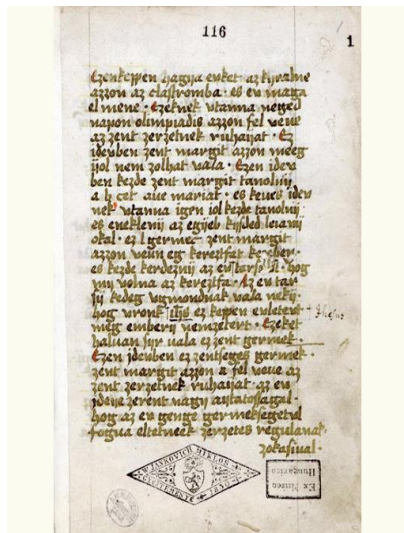 116
1
Ezenkeppen hagÿa euket az kÿralne
azzon az claſtromba · es eu maga
el mene · Ezeknek vtanna neged
napon olimpiadis azzon fel veue
az zent zerzetnek ruhaÿat · Ez
ideÿben zent margit azzon meeg
ÿol nem zolhat vala · Ezen ideu
ben kezde zent margit tanolnÿ
a b cet aue mariat · es keues ideu
nek vtanna igen ÿol kezde tanolnÿ
es eneklenÿ az egÿeb kÿſded leianÿ
okal · ez germec zent margit
azzon veun eg kereztfat
es kezde kerdeznÿ az euſtarſÿ hog
mÿ volna az kereztfa · Az eu tar
ſÿ kedeg vgmondnak vala nekÿ ·
hog vronk ez keppen euletet
meg emberÿ nemzetert · Ezeket
haluan ſÿr vala ez zent germek ·
Ezen ideuben ez zentſeges germek ·
zent margit azzon a fel veue az
zent zerzetnek ruhaÿat · az eu
ideÿe zerent nagÿ aÿtatoſſagal ·
hog az eu genge germekſegetul
fogua eltetneek zerzetes regulanak
zokaſiual ·
W. JANKOVICH MIKLOS
GYÜTEMENYE
Ex Museo
Hungarico